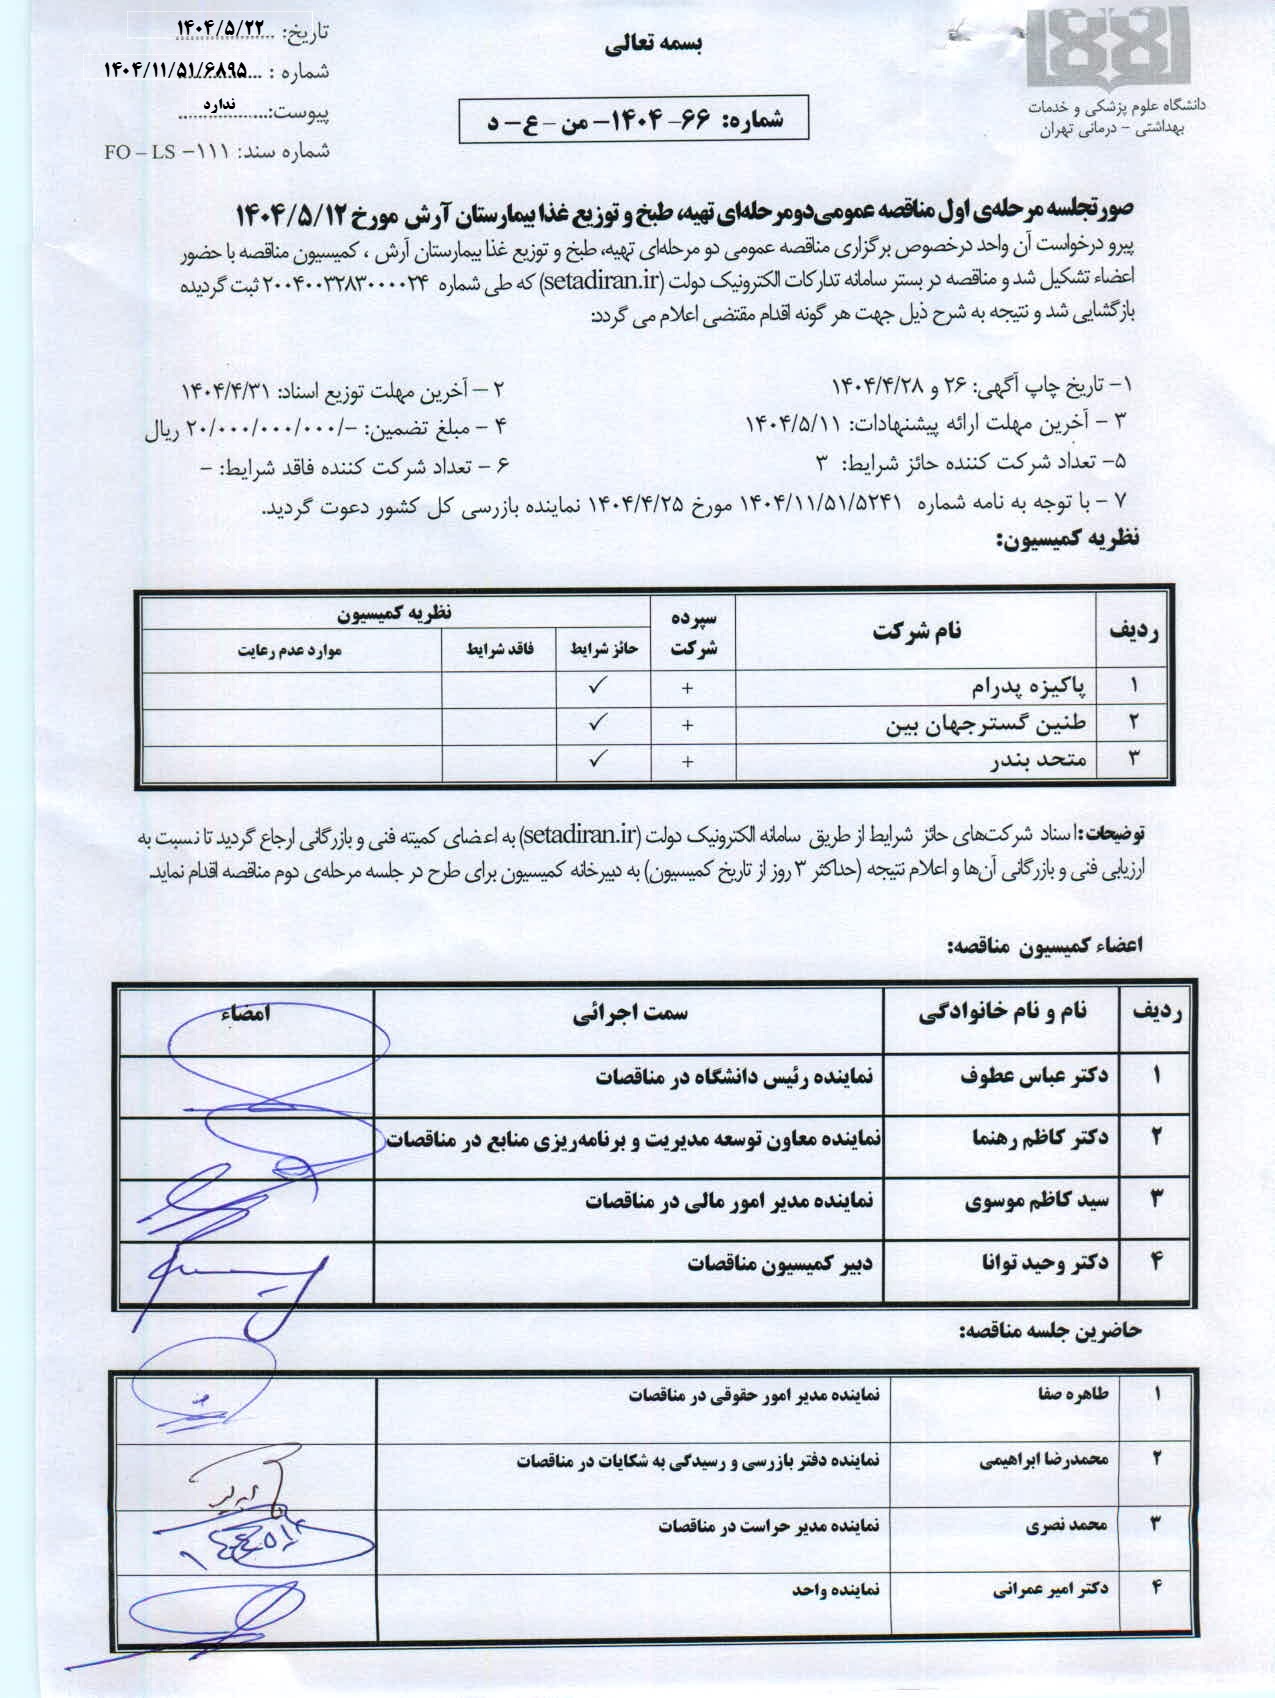 دانشگاه علوم پزشکی و خدمات
بهداشتی - درمانی تهران
بسمه تعالی
شماره: ۶۶- ۱۴۰۴- من - ع- د
تاریخ: ۱۴۰۴/۵/۲۲
شماره : ۱۴۰۴/۱۱/۵۱/۶۸۹۵
پیوست: ندارد
شماره سند: FO – LS –۱۱۱
صورتجلسه مرحله‌ی اول مناقصه عمومی دومرحله‌ای تهیه، طبخ و توزیع غذا بیمارستان آرش مورخ ۱۴۰۴/۵/۱۲
پیرو درخواست آن واحد درخصوص برگزاری مناقصه عمومی دو مرحله‌ای تهیه، طبخ و توزیع غذا بیمارستان آرش ، کمیسیون مناقصه با حضور
اعضاء تشکیل شد و مناقصه در بستر سامانه تدارکات الکترونیک دولت (setadiran.ir) که طی شماره ۲۰۰۴۰۰۳۲۸۳۰۰۰۰۲۴ ثبت گردیده
بازگشایی شد و نتیجه به شرح ذیل جهت هر گونه اقدام مقتضی اعلام می گردد:
۱- تاریخ چاپ آگهی: ۲۶ و ۱۴۰۴/۴/۲۸
۲ – آخرین مهلت توزیع اسناد: ۱۴۰۴/۴/۳۱
۳ - آخرین مهلت ارائه پیشنهادات: ۱۴۰۴/۵/۱۱
۴ - مبلغ تضمین: -/۲۰/۰۰۰/۰۰۰/۰۰۰ ریال
۵- تعداد شرکت کننده حائز شرایط: ۳
۶ - تعداد شرکت کننده فاقد شرایط: -
۷ - با توجه به نامه شماره ۱۴۰۴/۱۱/۵۱/۵۲۴۱ مورخ ۱۴۰۴/۴/۲۵ نماینده بازرسی کل کشور دعوت گردید.
نظریه کمیسیون:
ردیف نام شرکت سپرده شرکت نظریه کمیسیون
حائز شرایط فاقد شرایط موارد عدم رعایت
۱ پاکیزه پدرام + ✓
۲ طنین گستر جهان بین + ✓
۳ متحد بندر + ✓
توضیحات: اسناد شرکت‌های حائز شرایط از طریق سامانه الکترونیک دولت (setadiran.ir) به اعضای کمیته فنی و بازرگانی ارجاع گردید تا نسبت به
ارزیابی فنی و بازرگانی آن‌ها و اعلام نتیجه (حداکثر ۳ روز از تاریخ کمیسیون) به دبیرخانه کمیسیون برای طرح در جلسه مرحله‌ی دوم مناقصه اقدام نماید.
اعضاء کمیسیون مناقصه:
ردیف نام و نام خانوادگی سمت اجرائی امضاء
۱ دکتر عباس عطوف نماینده رئیس دانشگاه در مناقصات
۲ دکتر کاظم رهنما نماینده معاون توسعه مدیریت و برنامه‌ریزی منابع در مناقصات
۳ سید کاظم موسوی نماینده مدیر امور مالی در مناقصات
۴ دکتر وحید توانا دبیر کمیسیون مناقصات
حاضرین جلسه مناقصه:
۱ طاهره صفا نماینده مدیر امور حقوقی در مناقصات
۲ محمدرضا ابراهیمی نماینده دفتر بازرسی و رسیدگی به شکایات در مناقصات
۳ محمد نصری نماینده مدیر حراست در مناقصات
۴ دکتر امیر عمرانی نماینده واحد